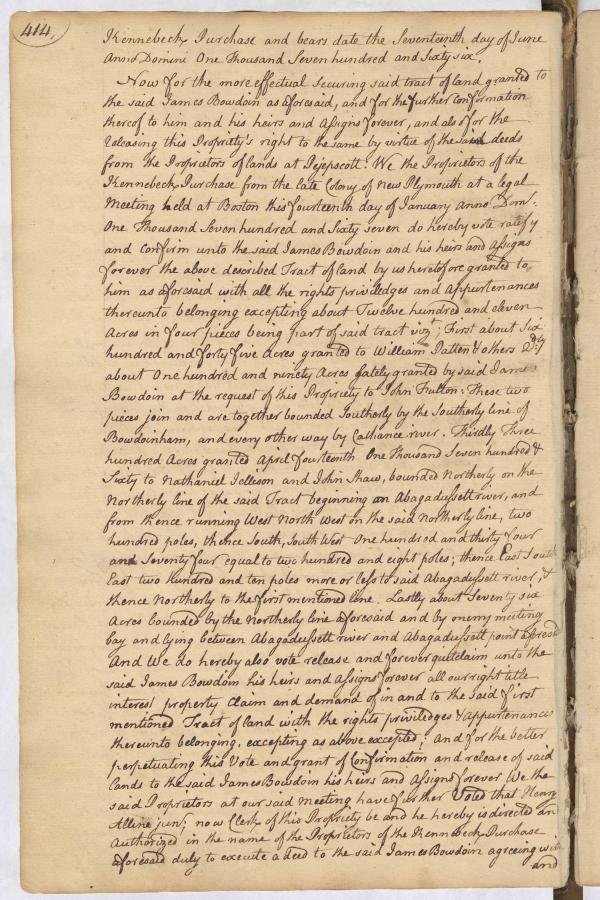 414.
Kennebeck Purchase and bears date the Seventeenth day of June
Anno Domini One Thousand Seven hundred and Sixty six.
Now for the more effectual securing said tract of land granted to
the said James Bowdoin as aforesaid, and for the further Confirmation
thereof to him and his heirs and Assigns forever, and also for the
releasing this Propriety's right to the same by virtue of the said deeds
from the Proprietors of lands at Pejepscott. We the Proprietors of the
Kennebeck Purchase from the late Colony of New Plymouth at a legal
Meeting held at Boston this fourteenth day of January Anno Dom:
One Thousand Seven hundred and Sixty seven do hereby vote ratify
and confirm unto the said James Bowdoin and his heirs and Assigns
forever the above described Tract of land by us heretofore granted to
him as aforesaid with all the rights priviledges and Appurtenances
thereunto belonging excepting about Twelve hundred and eleven
Acres in four pieces being part of said tract vizt; First about Six
hundred and forty five Acres granted to William Patten & others 2dly
about One hundred and ninety Acres lately granted by said James
Bowdoin at the request of this Propriety to John Fulton: These two
pieces join and are together bounded Southerly by the Southerly line of
Bowdoinham, and every other way by Cathance river. Thirdly Three
hundred Acres granted April fourteenth One Thousand Seven hundred &
Sixty to Nathaniel Jellison and John Shaw, bounded Northerly on the
Northerly line of the said Tract beginning on Abagadussett river, and
from thence running West North West on the said Northerly line, two
hundred poles, thence South, South West One hundred and thirty four
and Seventy four equal to two hundred and eight poles; thence East South
East two hundred and ten poles more or less to said Abagadussett river, &
thence Northerly to the first mentioned line. Lastly about Seventy six
Acres bounded by the Northerly line aforesaid and by merry meeting
bay and lying between Abagadussett river and Abagadussett point aforesd
And We do hereby also vote release and forever quitclaim unto the
said James Bowdoin his heirs and Assigns forever all our right title
interest property claim and demand of in and to the said first
mentioned Tract of land with the rights priviledges & appurtenances
thereunto belonging, excepting as above excepted; And for the better
perpetuating this Vote and grant of Confirmation and release of said
lands to the said James Bowdoin his heirs and Assigns forever We the
said Proprietors at our said Meeting have further Voted that Henry
Alline junr; now Clerk of this Propriety be and he hereby is directed an
Authorized in the name of the Proprietors of the Kennebeck Purchase
aforesaid duly to execute a deed to the said James Bowdoin agreeing with
and